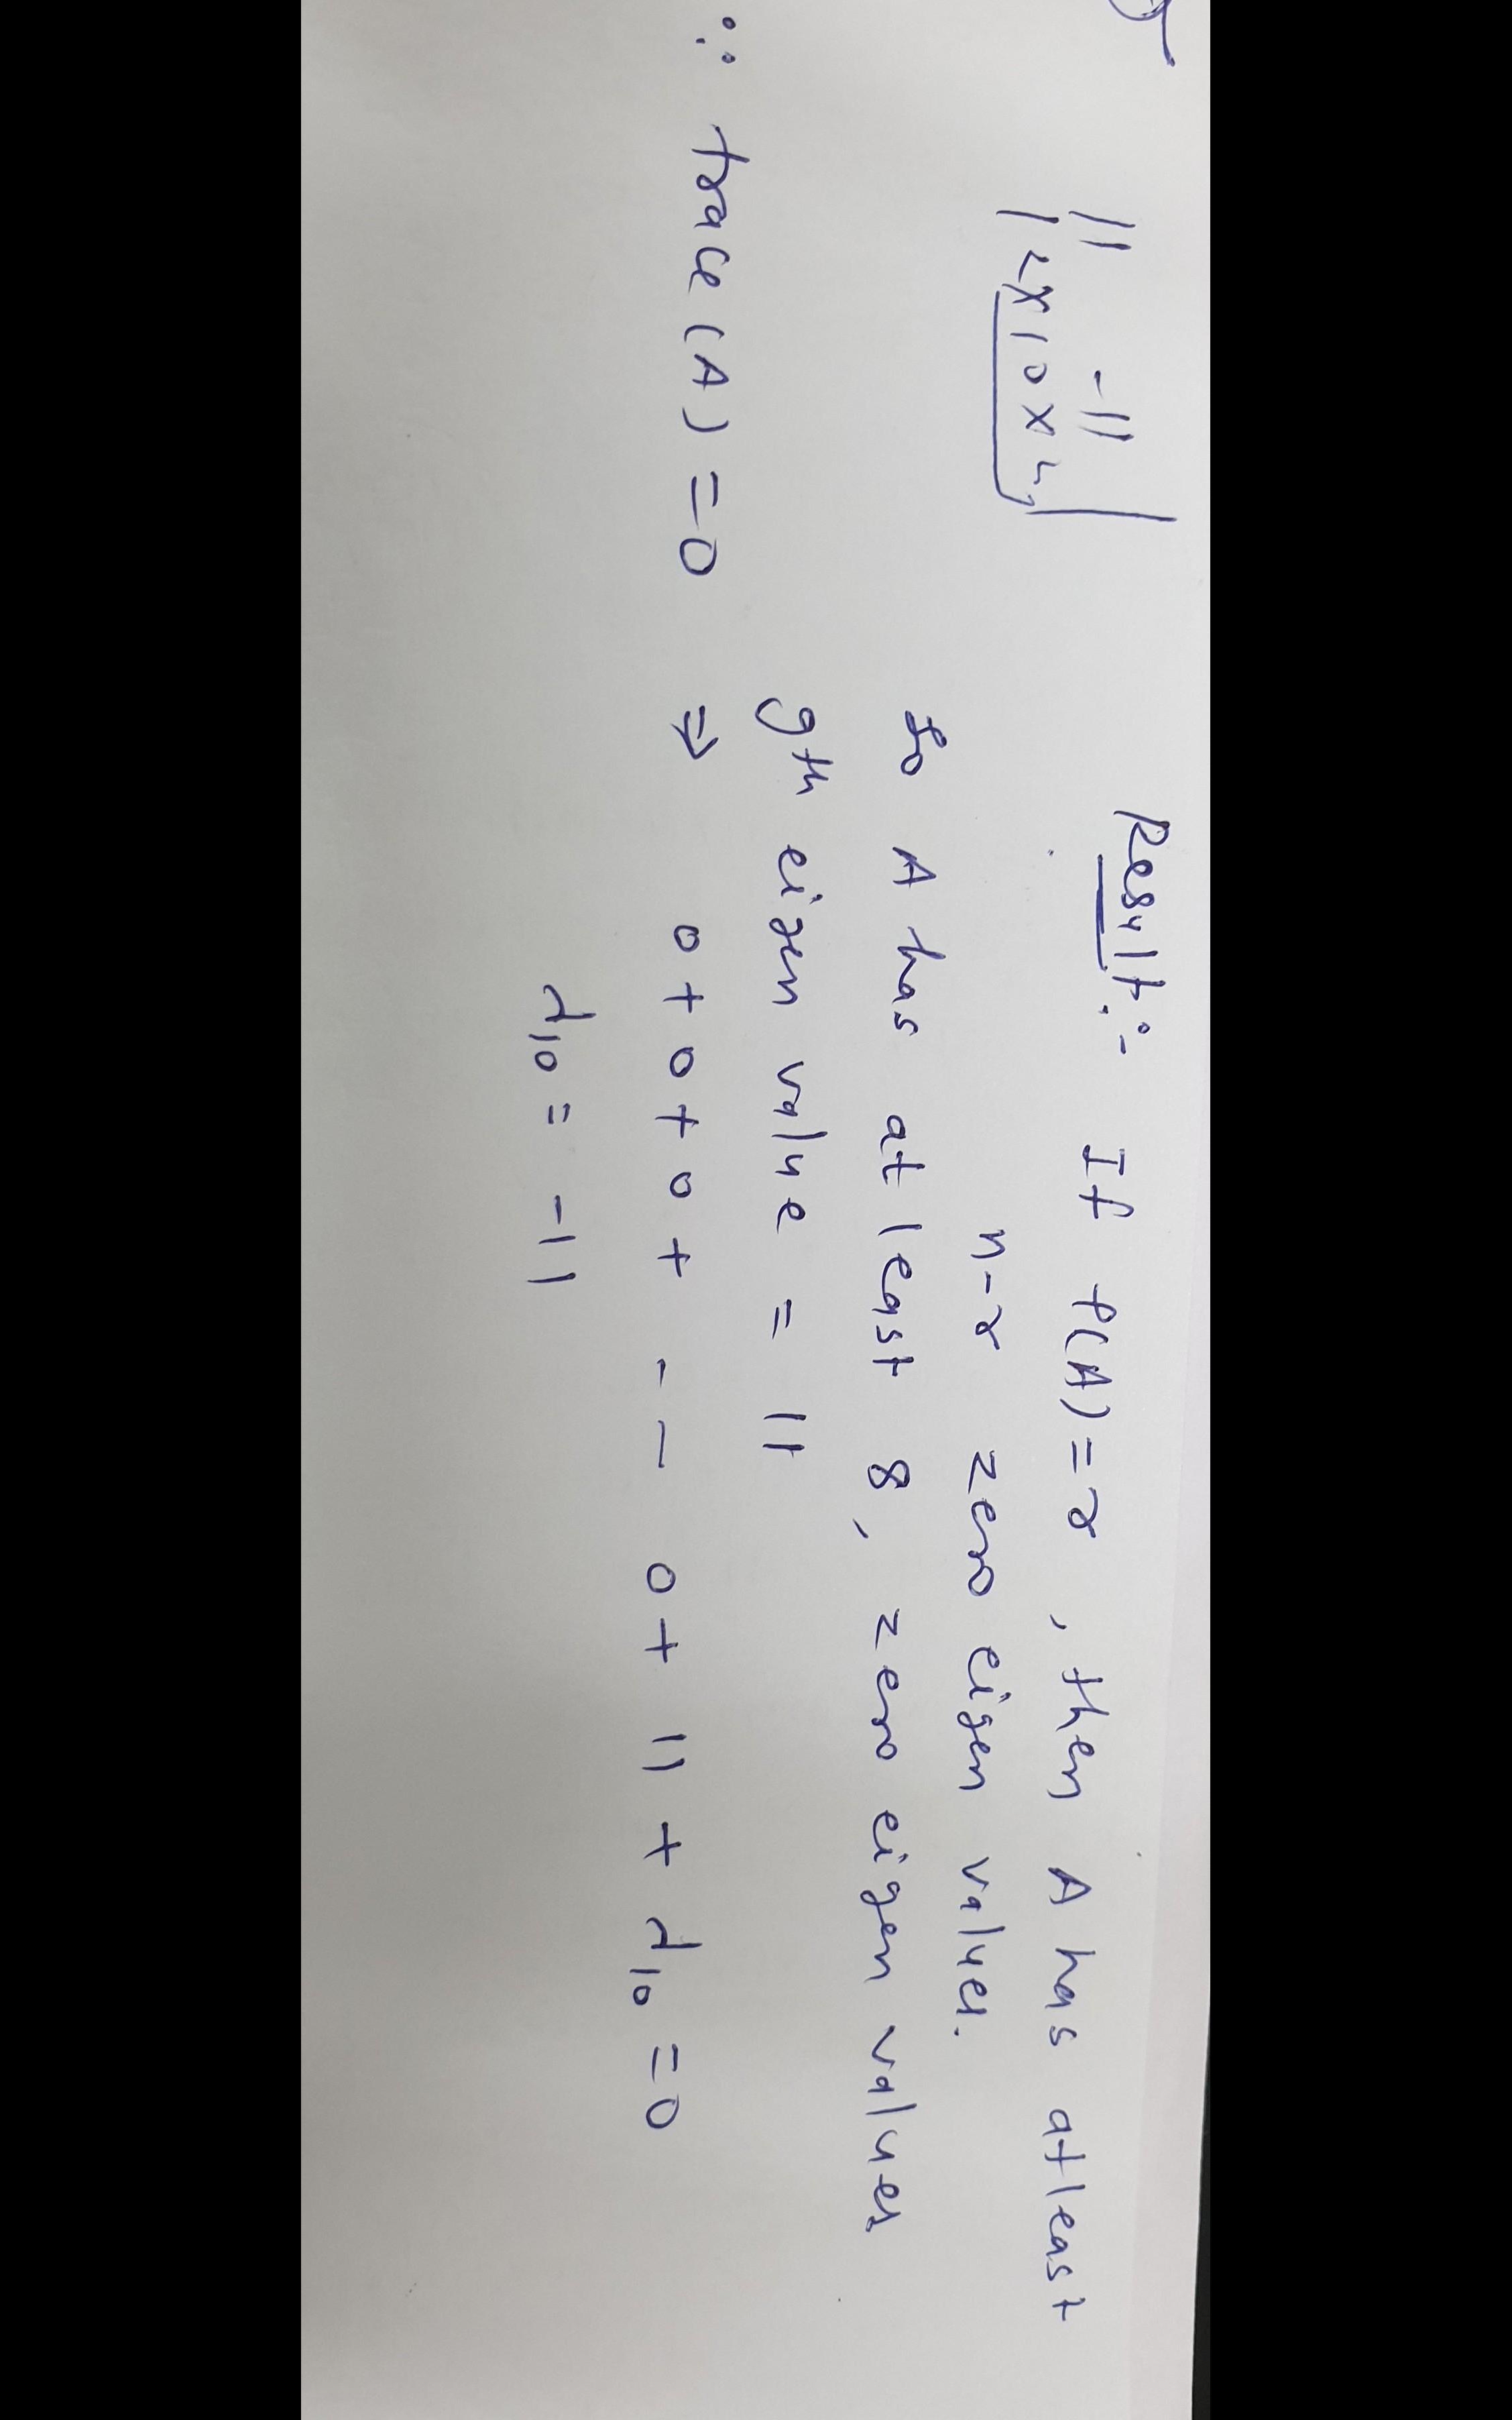 11 -11
Result:- If ρ(A)=r, then A has atleast
n-r zero eigen values.
so A has at least 8, zero eigen values
9th eigen value = 11
∵ trace(A)=0 ⇒ 0+0+0+ - - 0+11+λ10=0
λ10= -11